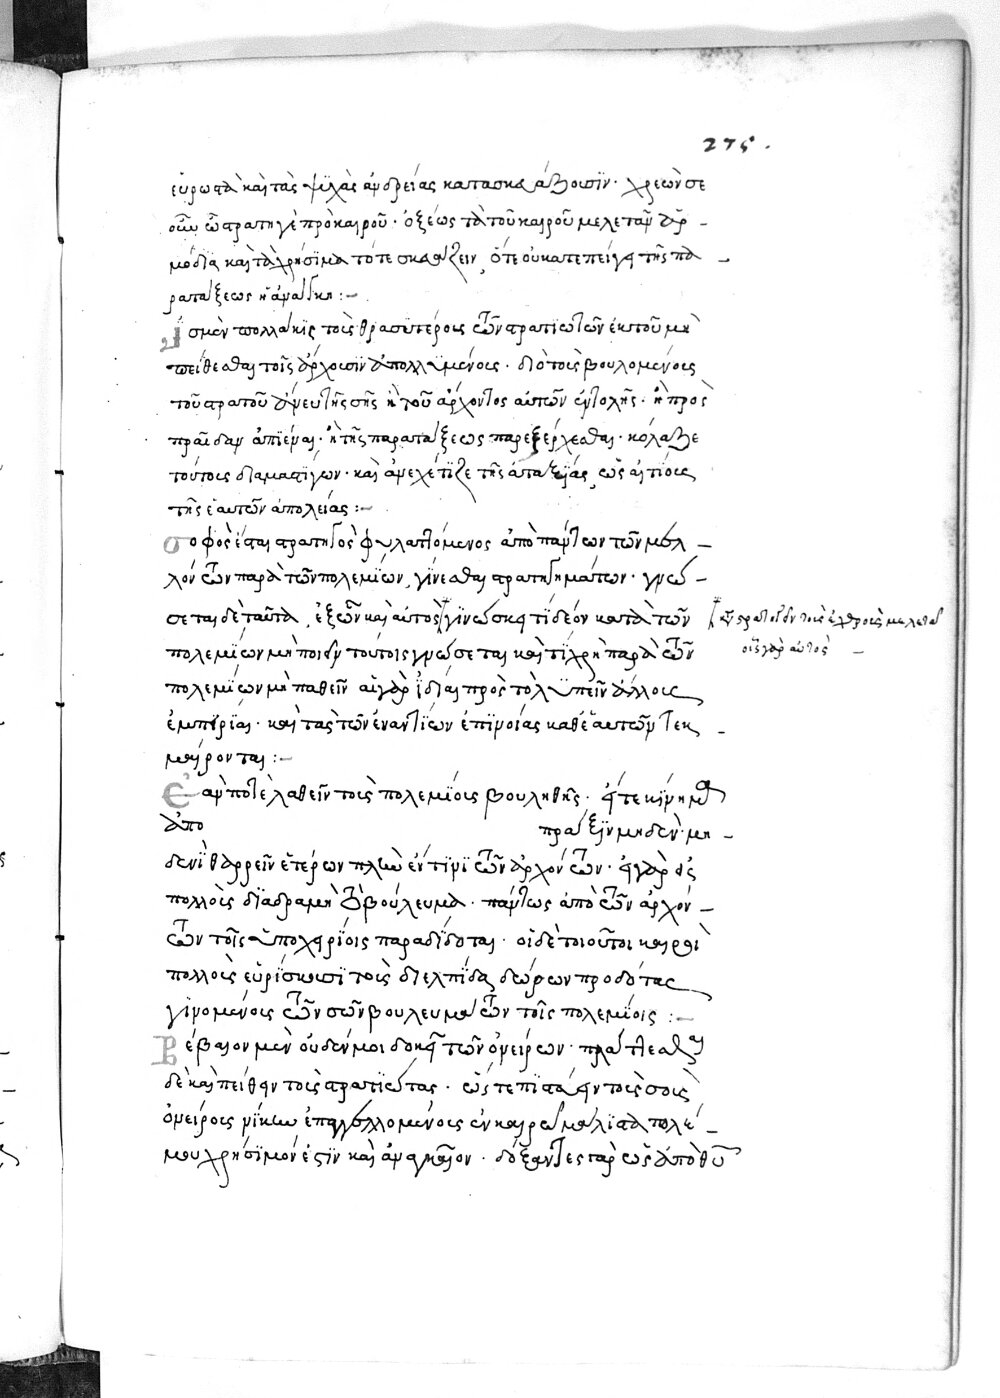 275.
εὔρωστα καὶ τὰς ψυχὰς ἀνδρείας κατασκευάζουσιν· χρεὼν σε
οὖν ὦ στρατηγὲ πρὸ καιροῦ· ὀξέως τὰ τοῦ καιροῦ μελετᾶν ἁρ
μόδια καὶ τὰ χρήσιμα τότε σκευάζειν, ὅτε οὐ κατεπείγει τῆς πα
ρατάξεως ἡ ἀνάγκη:-
ἴσμεν πολλάκις τοὺς θρασυτέρους τῶν στρατιωτῶν ἐκ τοῦ μὴ
πείθεσθαι τοῖς ἄρχουσιν ἀπολλυμένους· διὸ τοὺς βουλομένους
τοῦ στρατοῦ ἄνευ τῆς σῆς ἢ τοῦ ἄρχοντος αὐτῶν ἐντολῆς· ἢ πρὸς
πραῖδαν ἀπιέναι· ἢ τῆς παρατάξεως παρεξέρχεσθαι· κόλαζε
τούτους διὰ μαστίγων· καὶ ἀναχαίτιζε τῆς ἀταξίας, ὡς αἰτίους
τῆς ἑαυτῶν ἀπολείας:-
σοφὸς ἔσται στρατηγὸς φυλαττόμενος ἀπὸ πάντων τῶν μελ
λόντων παρὰ τῶν πολεμίων γίνεσθαι στρατηγημάτων· γνώ
σεται δὲ ταῦτα, ἐξ ὧν καὶ αὐτὸς γινώσκει τί δέον κατὰ τῶν
πολεμίων μὴ ποιεῖν τούτοις γνώσεται καὶ τί χρὴ παρὰ τῶν
πολεμίων μὴ παθεῖν αἱ γὰρ ἰδίαι πρὸς τὸ λυπεῖν ἄλλους
ἐμπειρίαι· καὶ τὰς τῶν ἐναντίων ἐπινοίας καθ' ἑαυτῶν τεκ
μαίρονται:-
ἐάν ποτε λαθεῖν τοὺς πολεμίους βουληθῆς· εἴτε κίνημα
ἀπὸ πρᾶξιν μηδὲν· μη
δενὶ θαρρεῖν ἑτέρων πλὴν ἐν τινὶ τῶν ἀρχόντων· εἰ γὰρ εἰς
πολλοὺς διαδραμῆ τὸ βούλευμα· πάντως ἀπὸ τῶν ἀρχόν
των τοῖς ὑποχειρίοις παραδίδοται· οἱ δὲ τοιοῦτοι καιροὶ
πολλοὺς εὑρίσκουσι τοὺς δι' ἐλπίδας δώρων προδότας
γινομένους τῶν σῶν βουλευμάτων τοῖς πολεμίοις:-
Βέβαιον μὲν οὐδέν μοι δοκεῖ τῶν ὀνείρων· πλάττεσθαι
δὲ καὶ πείθειν τοὺς στρατιώτας· ὥστε πιστεύειν τοὺς σοὺς
ὀνείρους νίκην ἐπαγγελλομένους ἐν καιρῷ μάλιστα πολέ
μου χρήσιμόν ἐστιν καὶ ἀναγκαῖον· δόξαντες γὰρ ὡς ἀπὸ θυ